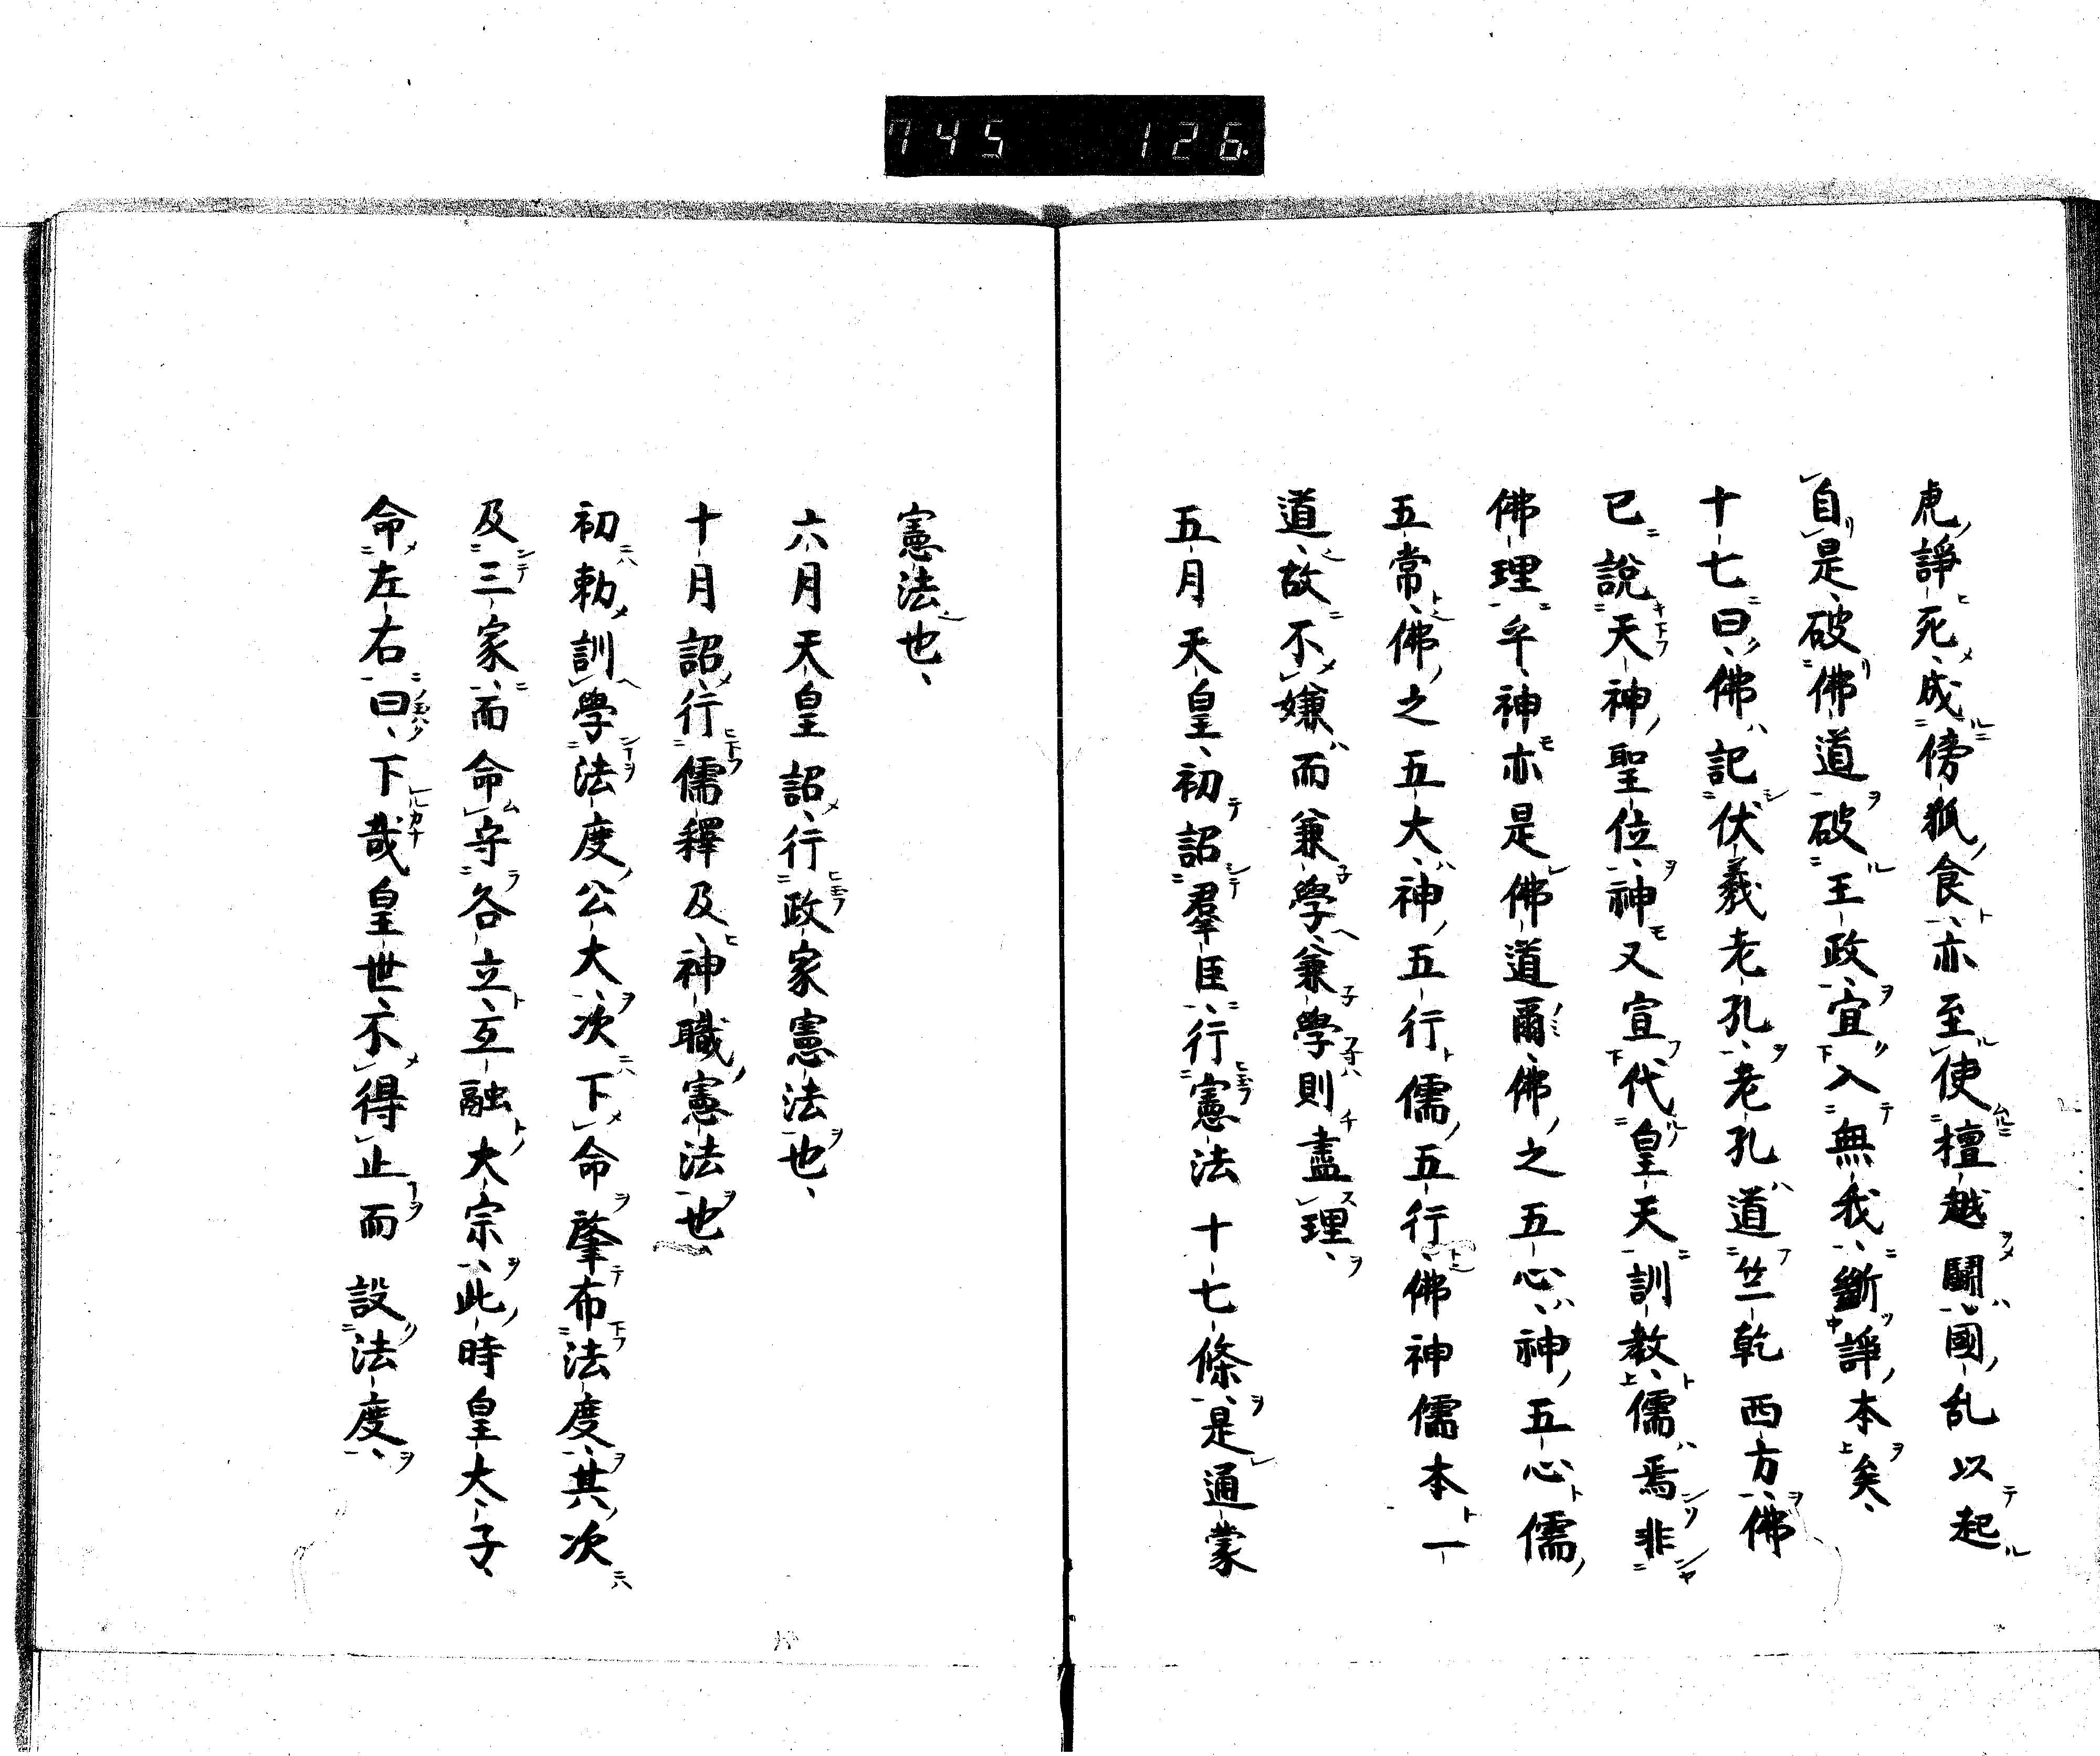 745 126.
虎諍死成傍狐食亦至使檀越鬪國乱以起
自是破佛道破王政宜入無我斷諍本矣
十七曰佛記伏羲老孔老孔道竺乾西方佛
已說天神聖位神又宣代皇天訓教儒焉非
佛理乎神亦是佛道爾佛之五心神五心儒
五常佛之五大神五行儒五行佛神儒本一
道故不嫌而兼學兼學則盡理
五月天皇初詔羣臣行憲法十七條是通蒙
憲法也
六月天皇詔行政家憲法也
十月詔行儒釋及神職憲法也
初勅訓學法度公大次下命肇布法度其次
及三家而命守各立互融大宗此時皇大子
命左右曰下哉皇世不得止而設法度